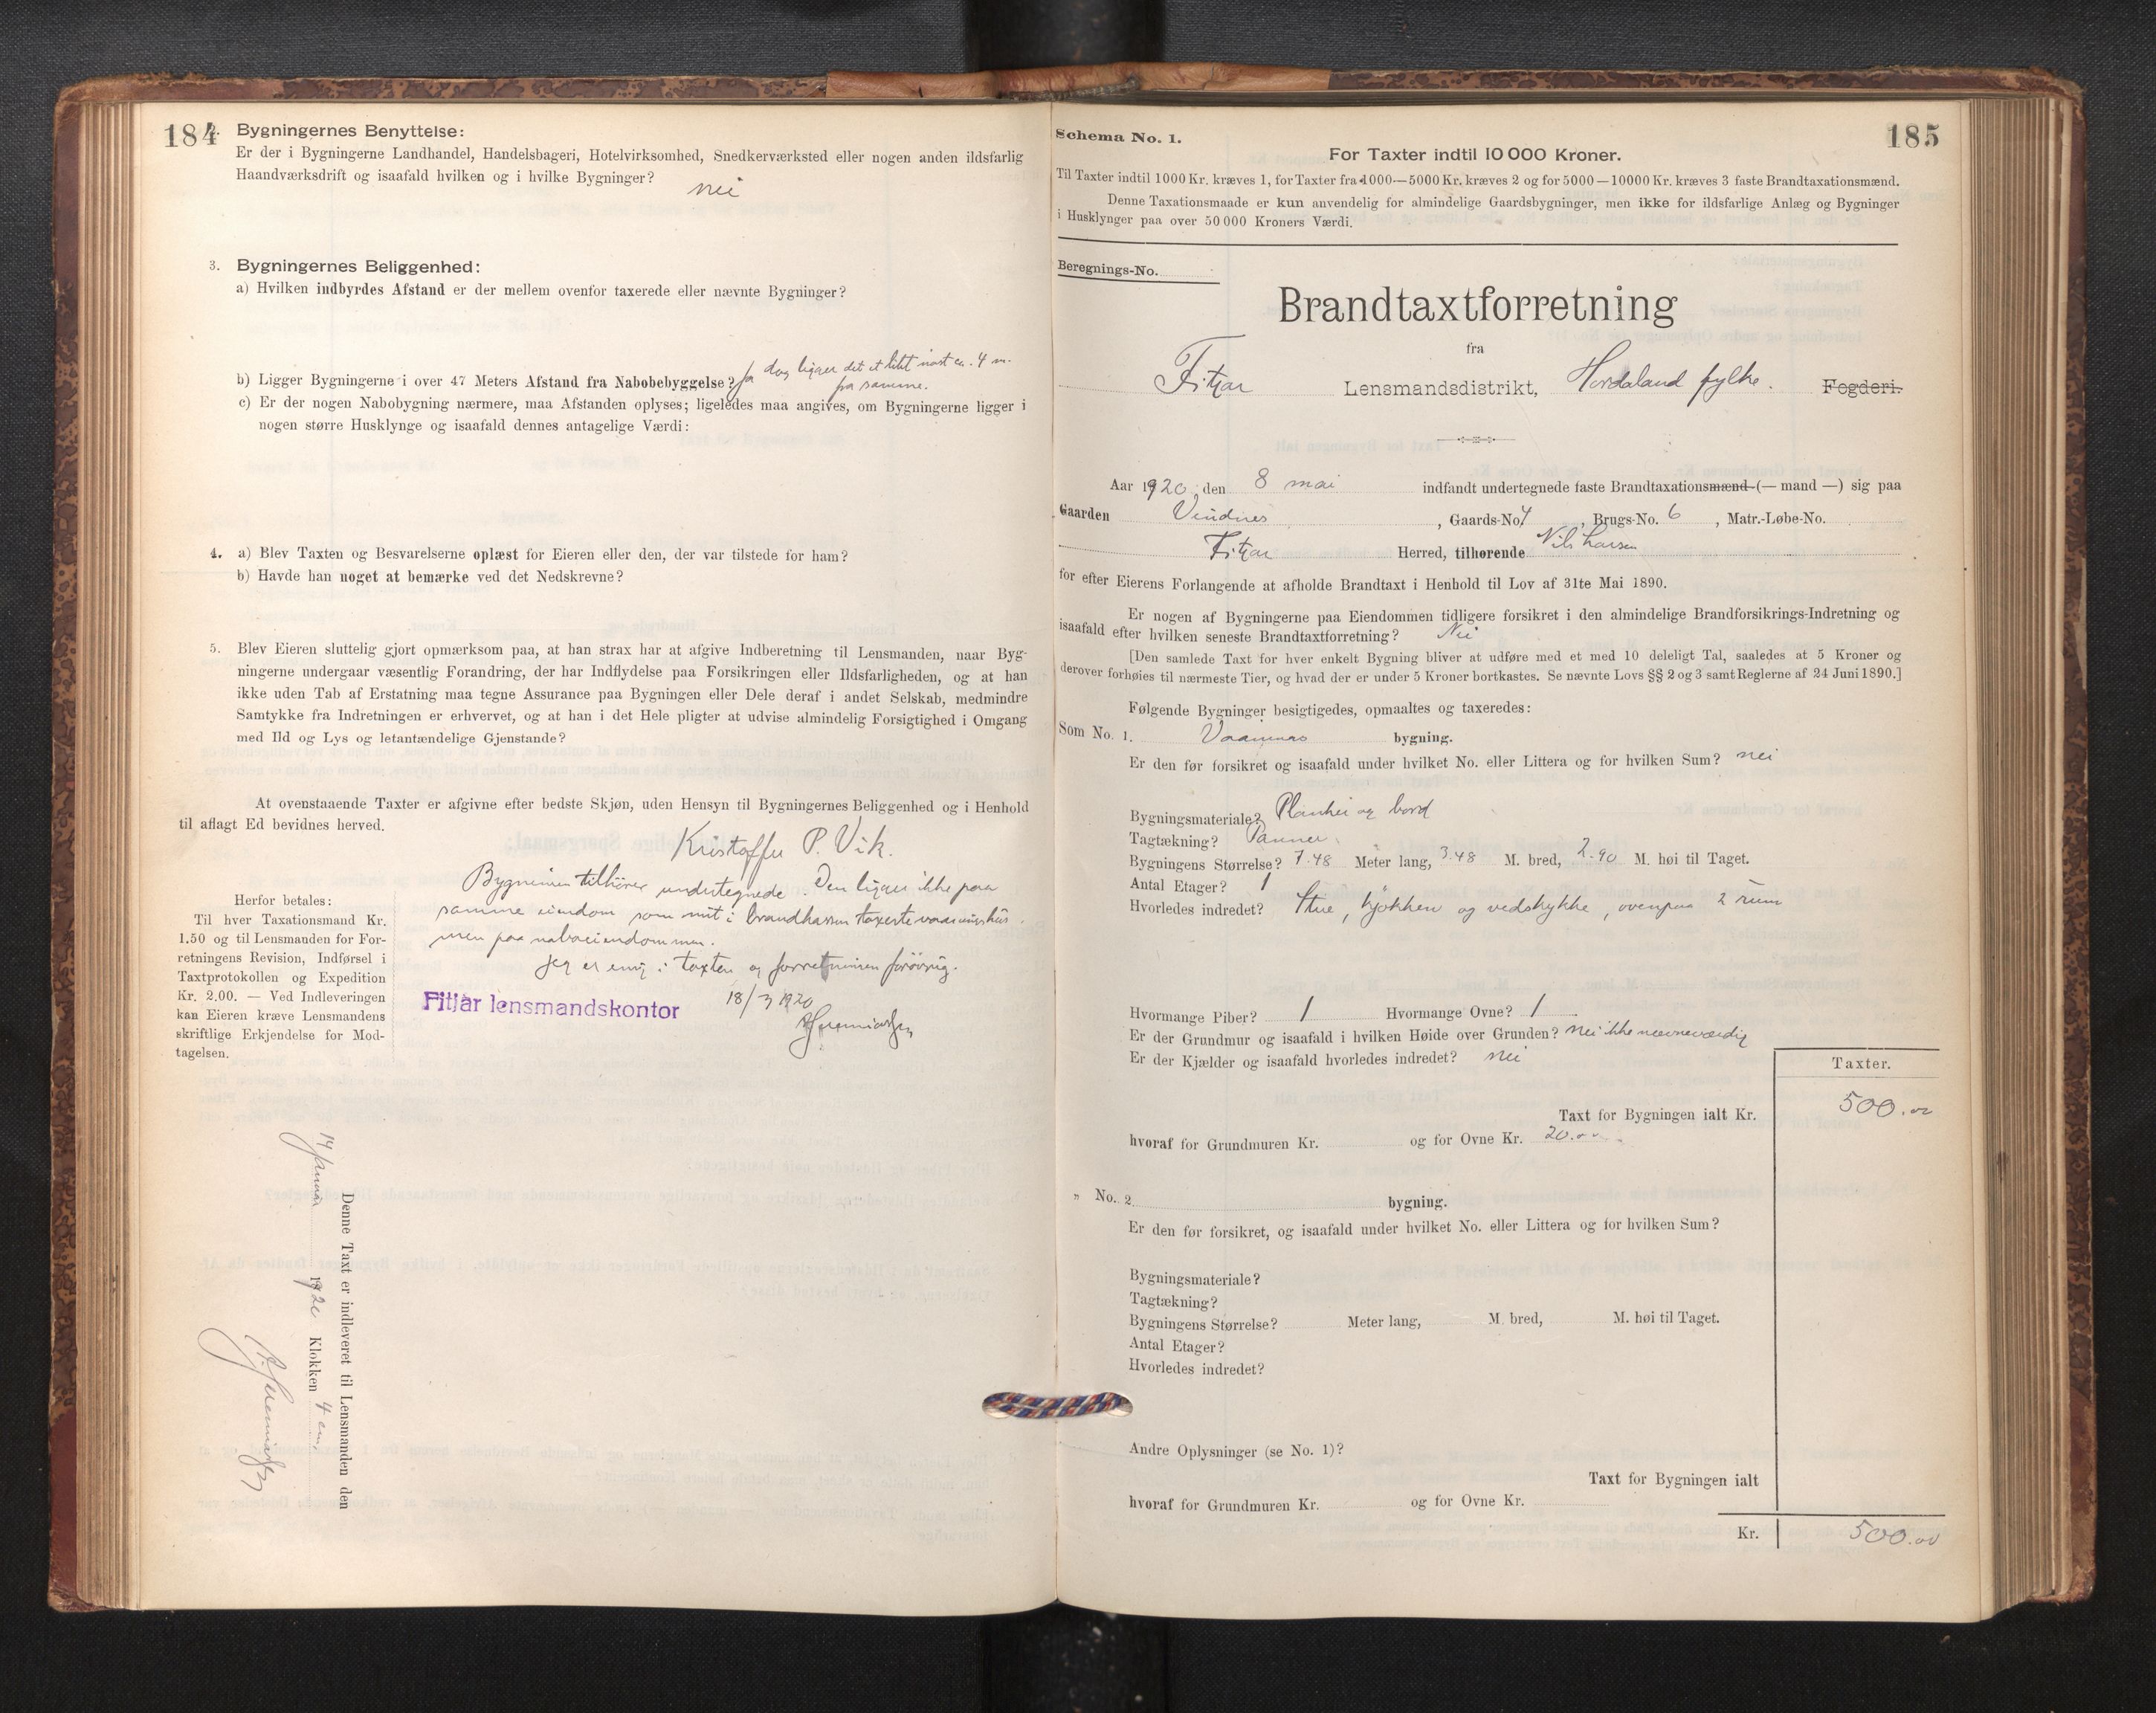 184
2. Bygningernes Benyttelse:
Er der i Bygningerne Landhandel, Handelsbageri, Hotelvirksomhed, Snedkerværksted eller nogen anden ildsfarlig
Haandværksdrift og isaafald hvilken og i hvilke Bygninger? nei
3. Bygningernes Beliggenhed:
a) Hvilken indbyrdes Afstand er der mellem ovenfor taxerede eller nævnte Bygninger?
b) Ligger Bygningerne i over 47 Meters Afstand fra Nabobebyggelse? Ja dog ligger det et litet nøst ca. 4 m.
fra samme.
c) Er der nogen Nabobygning nærmere, maa Afstanden oplyses; ligeledes maa angives, om Bygningerne ligger i
nogen større Husklynge og isaafald dennes antagelige Værdi:
4. a) Blev Taxten og Besvarelserne oplæst for Eieren eller den, der var tilstede for ham?
b) Havde han noget at bemærke ved det Nedskrevne?
5. Blev Eieren sluttelig gjort opmærksom paa, at han strax har at afgive Indberetning til Lensmanden, naar Byg-
ningerne undergaar væsentlig Forandring, der har Indflydelse paa Forsikringen eller Ildsfarligheden, og at han
ikke uden Tab af Erstatning maa tegne Assurance paa Bygningen eller Dele deraf i andet Selskab, medmindre
Samtykke fra Indretningen er erhvervet, og at han i det Hele pligter at udvise almindelig Forsigtighed i Omgang
med Ild og Lys og letantændelige Gjenstande?
At ovenstaaende Taxter er afgivne efter bedste Skjøn, uden Hensyn til Bygningernes Beliggenhed og i Henhold
til aflagt Ed bevidnes herved.
Kristoffer P. Vik.
Bygningen tilhører undertegnede. Den ligger ikke paa
samme eiendom som mit i brandkassen taxerte vaaningshus
men paa naboeiendommen.
Jeg er enig i taxten og forretningen forøvrig.
Fitjar lensmandskontor 18/3 1920
Herfor betales:
Til hver Taxationsmand Kr.
1.50 og til Lensmanden for For-
retningens Revision, Indførsel i
Taxtprotokollen og Expedition
Kr. 2.00. — Ved Indleveringen
kan Eieren kræve Lensmandens
skriftlige Erkjendelse for Mod-
tagelsen.
Denne Taxt er indleveret til Lensmanden den
14 januar 1920 Klokken 4 em.
185
Schema No. 1.
For Taxter indtil 10 000 Kroner.
Til Taxter indtil 1000 Kr. kræves 1, for Taxter fra 1000—5000 Kr. kræves 2 og for 5000—10000 Kr. kræves 3 faste Brandtaxationsmænd.
Denne Taxationsmaade er kun anvendelig for almindelige Gaardsbygninger, men ikke for ildsfarlige Anlæg og Bygninger
i Husklynger paa over 50 000 Kroners Værdi.
Beregnings-No.
Brandtaxtforretning
fra
Fitjar Lensmandsdistrikt, Hordaland fylke. Fogderi.
Aar 1920, den 8 mai indfandt undertegnede faste Brandtaxationsmænd (— mand —) sig paa
Gaarden Vindnes, Gaards-No. 4, Brugs-No. 6, Matr.-Løbe-No.
Fitjar Herred, tilhørende Nils Larsen
for efter Eierens Forlangende at afholde Brandtaxt i Henhold til Lov af 31te Mai 1890.
Er nogen af Bygningerne paa Eiendommen tidligere forsikret i den almindelige Brandforsikrings-Indretning og
isaafald efter hvilken seneste Brandtaxtforretning? Nei
[Den samlede Taxt for hver enkelt Bygning bliver at udføre med et med 10 deleligt Tal, saaledes at 5 Kroner og
derover forhøies til nærmeste Tier, og hvad der er under 5 Kroner bortkastes. Se nævnte Lovs §§ 2 og 3 samt Reglerne af 24 Juni 1890.]
Følgende Bygninger besigtigedes, opmaaltes og taxeredes:
Som No. 1. Vaanings bygning.
Er den før forsikret og isaafald under hvilket No. eller Littera og for hvilken Sum? nei
Bygningsmateriale? Planker og bord
Tagtækning? Panner
Bygningens Størrelse? 7.48 Meter lang, 3.48 M. bred, 2.90 M. høi til Taget.
Antal Etager? 1
Hvorledes indredet? Stue, kjøkken og vedskykke, ovenpaa 2 rum
Hvormange Piber? 1 Hvormange Ovne? 1
Er der Grundmur og isaafald i hvilken Høide over Grunden? nei ikke nævneværdig
Er der Kjælder og isaafald hvorledes indredet? nei
Taxter.
Taxt for Bygningen ialt Kr. 500.00
hvoraf for Grundmuren Kr. og for Ovne Kr. 20.00
" No. 2 bygning.
Er den før forsikret, og isaafald under hvilket No. eller Littera og for hvilken Sum?
Bygningsmateriale?
Tagtækning?
Bygningens Størrelse? Meter lang, M. bred, M. høi til Taget.
Antal Etager?
Hvorledes indredet?
Andre Oplysninger (se No. 1)?
Taxt for Bygningen ialt
hvoraf for Grundmuren Kr. og for Ovne Kr.
Kr. 500.00